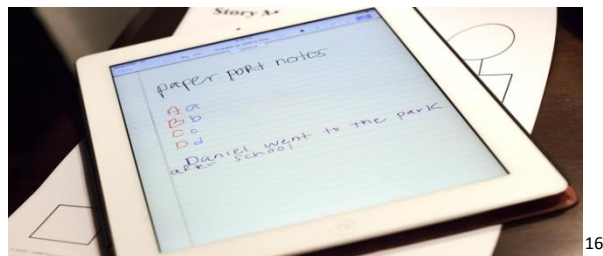 Story A
paper port notes
A a
B b
C c
D d
Daniel went to the park
after school
16